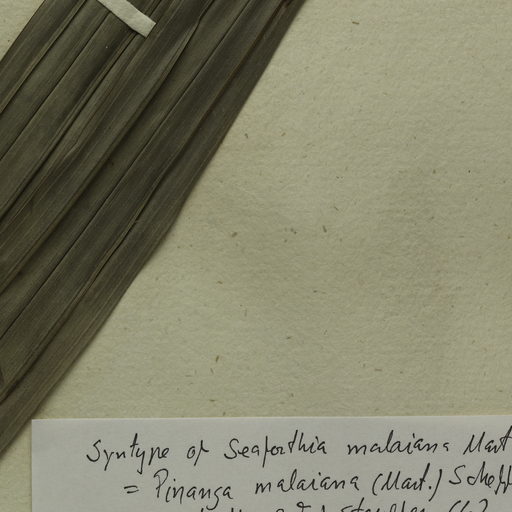 Syntype of Seaforthia malaiana Mart
= Pinanga malaiana (Mart.) Scheff